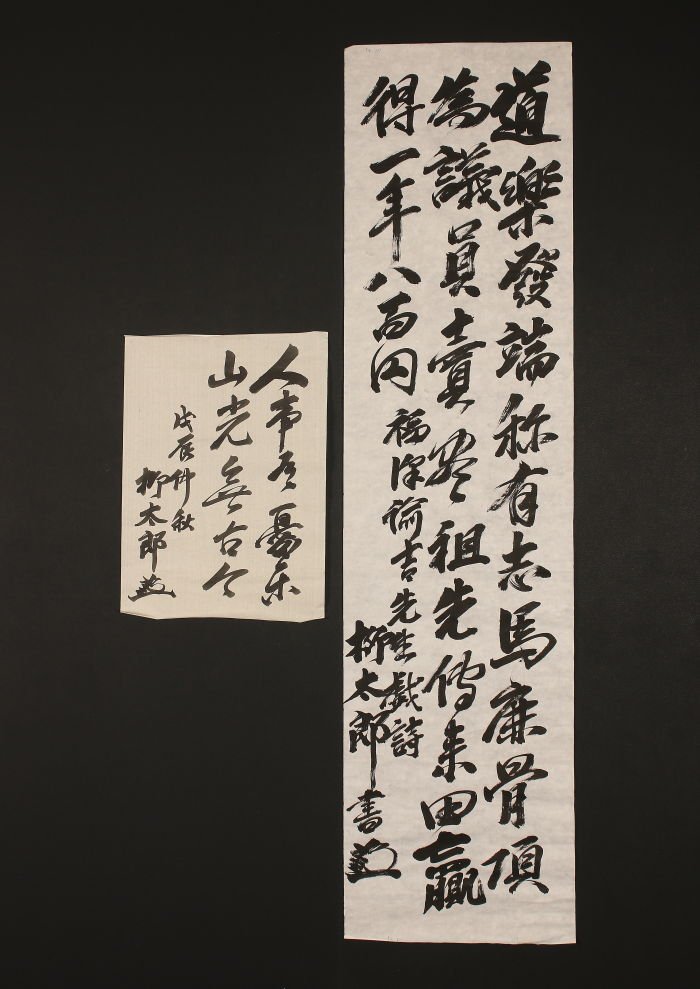 道樂發端称有志馬鹿骨頂
為議員賣尽祖先傳来田贏
得一年八百円
福澤諭吉先生戯詩
柳太郎書
人事有憂樂
山光無古今
戊辰仲秋
柳太郎